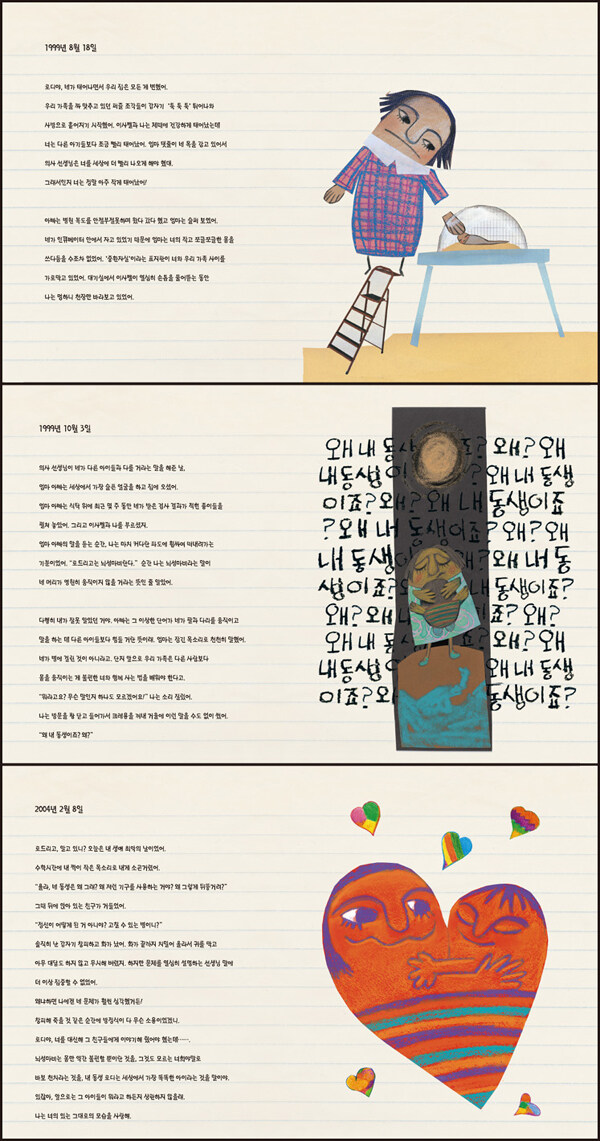 1999년 8월 18일
로디야, 네가 태어나면서 우리 집은 모든 게 변했어.
우리 가족을 꽉 맞추고 있던 퍼즐 조각들이 갑자기 '툭 툭 툭' 튀어나와
사방으로 흩어지기 시작했어. 이사벨과 나는 제때에 건강하게 태어났는데
너는 다른 아기들보다 조금 빨리 태어났어. 엄마 탯줄이 네 목을 감고 있어서
의사 선생님은 너를 세상에 더 빨리 나오게 해야 했대.
그래서인지 너는 정말 아주 작게 태어났어!
아빠는 병원 복도를 안절부절못하며 왔다 갔다 했고 엄마는 슬퍼 보였어.
네가 인큐베이터 안에서 자고 있었기 때문에 엄마는 너의 작고 쪼글쪼글한 몸을
쓰다듬을 수조차 없었어. '중환자실'이라는 표지판이 너와 우리 가족 사이를
가로막고 있었어. 대기실에서 이사벨이 열심히 손톱을 물어뜯는 동안
나는 멍하니 천장만 바라보고 있었어.
1999년 10월 3일
의사 선생님이 네가 다른 아이들과 다를 거라는 말을 해준 날,
엄마 아빠는 세상에서 가장 슬픈 얼굴을 하고 집에 오셨어.
엄마 아빠는 식탁 위에 최근 몇 주 동안 네가 받은 검사 결과가 적힌 종이들을
펼쳐 놓았어. 그리고 이사벨과 나를 부르셨지.
엄마 아빠의 말을 듣는 순간, 나는 마치 커다란 파도에 휩쓸려 떠내려가는
기분이었어. "로드리고는 뇌성마비란다." 순간 나는 뇌성마비라는 말이
네 머리가 영원히 움직이지 않을 거라는 뜻인 줄 알았어.
다행히 내가 잘못 알았던 거야. 아빠는 그 이상한 단어가 네가 팔과 다리를 움직이고
말을 하는 데 다른 아이들보다 힘들 거란 뜻이래. 엄마는 잠긴 목소리로 천천히 말했어.
네가 병에 걸린 것이 아니라고. 단지 앞으로 우리 가족은 다른 사람보다
몸을 움직이는 게 불편한 너와 함께 사는 법을 배워야 한다고.
"뭐라고요? 무슨 말인지 하나도 모르겠어요!" 나는 소리 질렀어.
나는 방문을 쾅 닫고 들어가서 크레용을 꺼내 거울에 이런 말을 수도 없이 썼어.
"왜 내 동생이죠? 왜?"
왜 내 동생 죠? 왜? 왜
내 동생이 왜 내 동생
이죠? 왜? 왜 내 동생이죠
? 왜 내 동생이죠? 왜? 왜
내 동생이 왜 내 동
생이죠? 왜 내 동생이죠?
왜? 왜 내 왜? 왜
내 동생이 왜 내 동생
이죠? 왜 동생이죠?
2004년 2월 8일
로드리고, 알고 있니? 오늘은 내 생애 최악의 날이었어.
수학시간에 내 짝이 작은 목소리로 내게 소곤거렸어.
"율라, 네 동생은 왜 그래? 왜 저런 기구를 사용하는 거야? 왜 그렇게 뒤뚱거려?"
그때 뒤에 앉아 있는 친구가 거들었어.
"정신이 어떻게 된 거 아니야? 고칠 수 있는 병이니?"
솔직히 난 갑자기 창피하고 화가 났어. 화가 끝까지 치밀어 올라서 귀를 막고
아무 대답도 하지 않고 무시해 버렸지. 하지만 문제를 열심히 설명하는 선생님 말에
더 이상 집중할 수 없었어.
왜냐하면 나에겐 네 문제가 훨씬 심각했거든!
창피해 죽을 것 같은 순간에 방정식이 다 무슨 소용이었겠니.
로디야, 너를 대신해 그 친구들에게 이야기해 줬어야 했는데…….
뇌성마비는 몸만 약간 불편할 뿐이란 것을, 그것도 모르는 너희야말로
바보 천치라는 것을, 내 동생 로디는 세상에서 가장 똑똑한 아이라는 것을 말이야.
있잖아, 앞으로는 그 아이들이 뭐라고 하든지 상관하지 않을래.
나는 너의 있는 그대로의 모습을 사랑해.